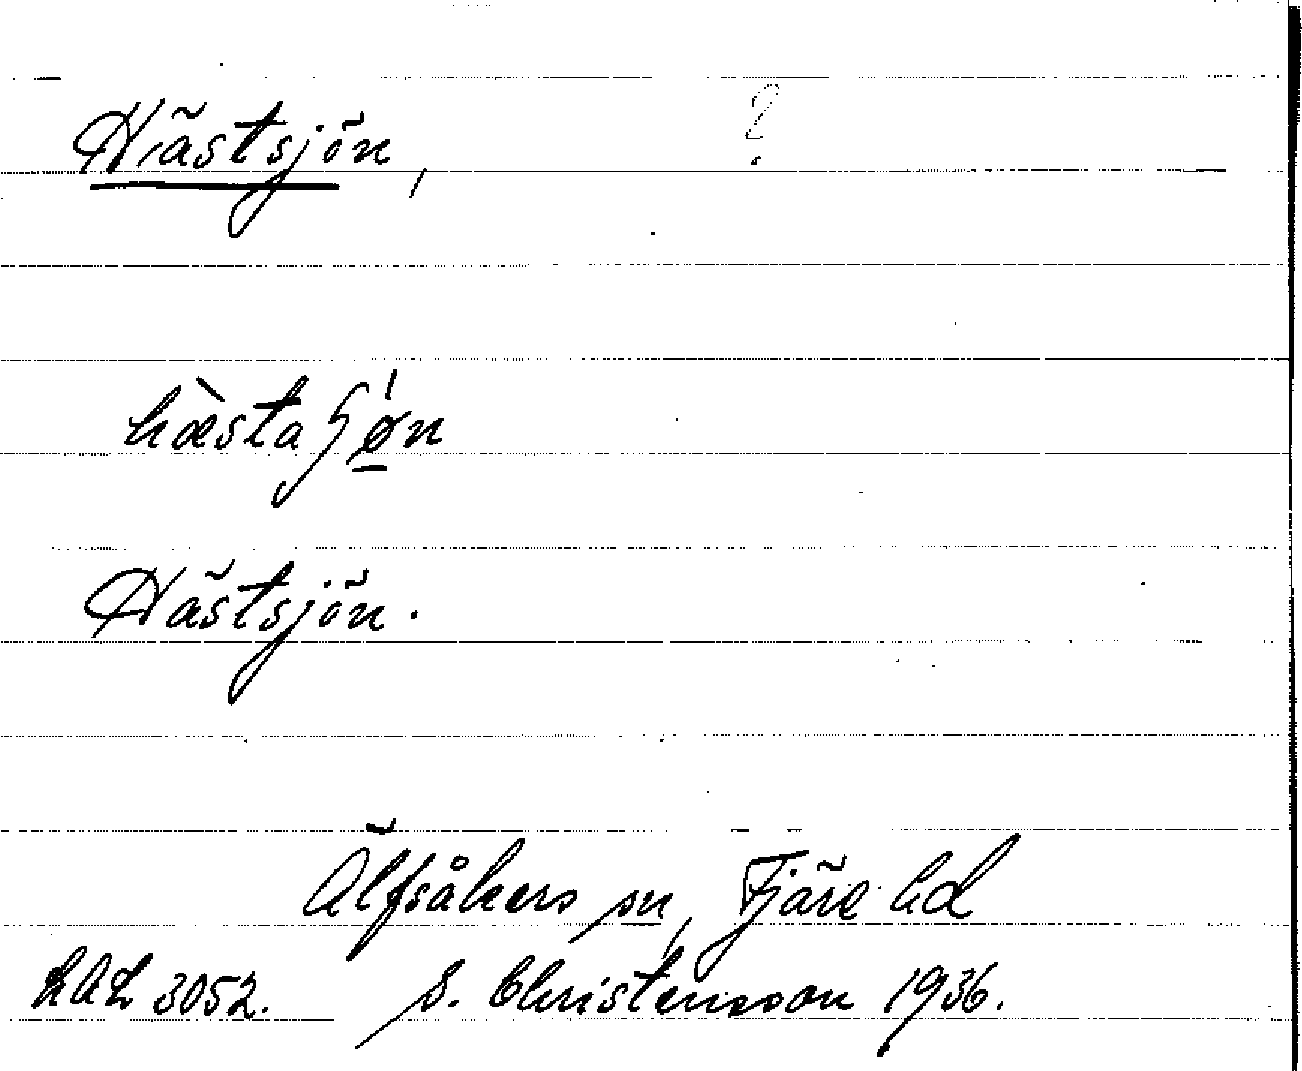 Hästsjön, ?
hæ̀staʃǿ̠n
Hästsjön.
Älfsåkers sn, Fjäre hd
LAL 3052. S. Christensson 1936.